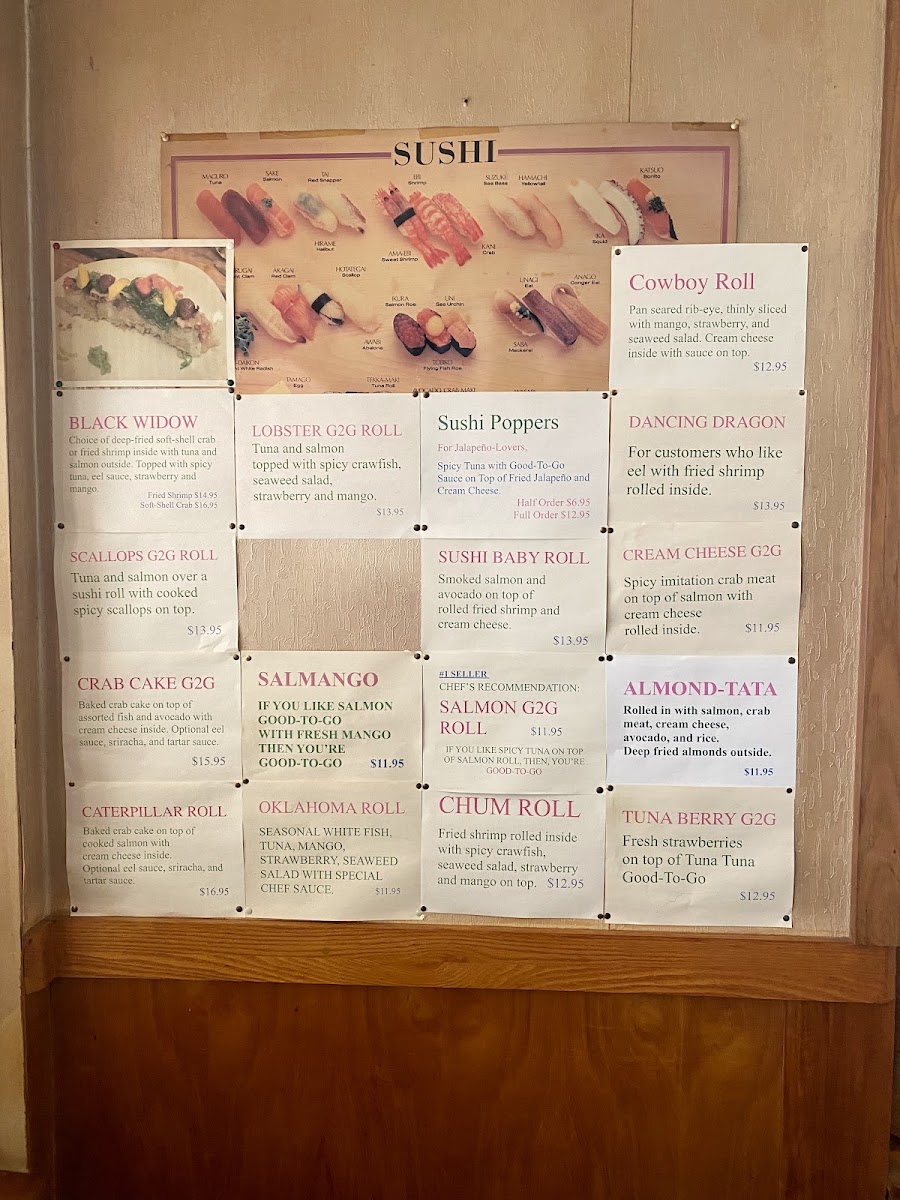 SUSHI
MAGURO
Tuna
SAKE
Salmon
TAI
Red Snapper
EBI
Shrimp
SUZUKI
Sea Bass
HAMACHI
Yellowtail
KATSUO
Bonito
HIRAME
Halibut
AMA-EBI
Sweet Shrimp
KANI
Crab
IKA
Squid
AKAGAI
Red Clam
HOTATEGAI
Scallop
IKURA
Salmon Roe
UNI
Sea Urchin
UNAGI
Eel
ANAGO
Conger Eel
AWABI
Abalone
SABA
Mackerel
TOBIKO
Flying Fish Roe
White Radish
TAMAGO
Egg
TEKKA-MAKI
Tuna Roll
Cowboy Roll
Pan seared rib-eye, thinly sliced
with mango, strawberry, and
seaweed salad. Cream cheese
inside with sauce on top.
$12.95
BLACK WIDOW
Choice of deep-fried soft-shell crab
or fried shrimp inside with tuna and
salmon outside. Topped with spicy
tuna, eel sauce, strawberry and
mango.
Fried Shrimp $14.95
Soft-Shell Crab $16.95
LOBSTER G2G ROLL
Tuna and salmon
topped with spicy crawfish,
seaweed salad,
strawberry and mango.
$13.95
Sushi Poppers
For Jalapeño-Lovers,
Spicy Tuna with Good-To-Go
Sauce on Top of Fried Jalapeño and
Cream Cheese.
Half Order $6.95
Full Order $12.95
DANCING DRAGON
For customers who like
eel with fried shrimp
rolled inside.
$13.95
SCALLOPS G2G ROLL
Tuna and salmon over a
sushi roll with cooked
spicy scallops on top.
$13.95
SUSHI BABY ROLL
Smoked salmon and
avocado on top of
rolled fried shrimp and
cream cheese.
$13.95
CREAM CHEESE G2G
Spicy imitation crab meat
on top of salmon with
cream cheese
rolled inside. $11.95
CRAB CAKE G2G
Baked crab cake on top of
assorted fish and avocado with
cream cheese inside. Optional eel
sauce, sriracha, and tartar sauce.
$15.95
SALMANGO
IF YOU LIKE SALMON
GOOD-TO-GO
WITH FRESH MANGO
THEN YOU'RE
GOOD-TO-GO $11.95
#1 SELLER
CHEF'S RECOMMENDATION:
SALMON G2G
ROLL $11.95
IF YOU LIKE SPICY TUNA ON TOP
OF SALMON ROLL, THEN, YOU'RE
GOOD-TO-GO
ALMOND-TATA
Rolled in with salmon, crab
meat, cream cheese,
avocado, and rice.
Deep fried almonds outside.
$11.95
CATERPILLAR ROLL
Baked crab cake on top of
cooked salmon with
cream cheese inside.
Optional eel sauce, sriracha, and
tartar sauce.
$16.95
OKLAHOMA ROLL
SEASONAL WHITE FISH,
TUNA, MANGO,
STRAWBERRY, SEAWEED
SALAD WITH SPECIAL
CHEF SAUCE. $11.95
CHUM ROLL
Fried shrimp rolled inside
with spicy crawfish,
seaweed salad, strawberry
and mango on top. $12.95
TUNA BERRY G2G
Fresh strawberries
on top of Tuna Tuna
Good-To-Go
$12.95